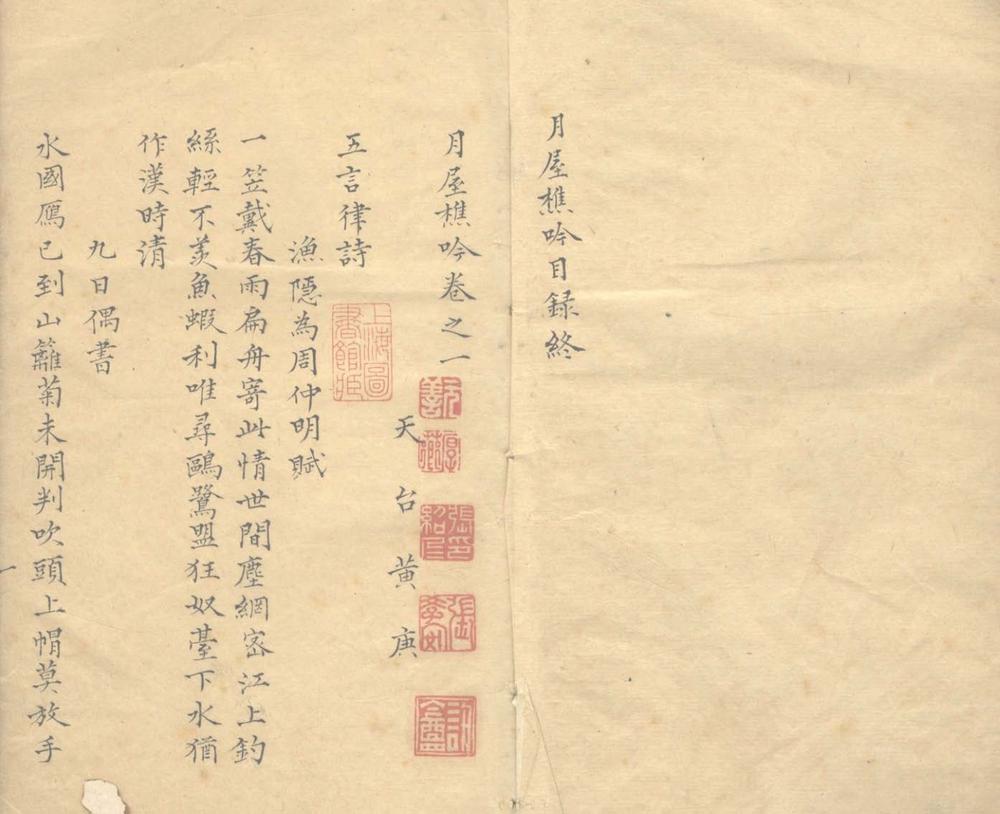 月屋樵吟目録終
月屋樵吟卷之一
天台黄庚
五言律詩
漁隱為周仲明賦
一笠戴春雨扁舟寄此情世間塵網宻江上釣
絲輕不羡魚蝦利唯尋鷗鷺盟狂奴臺下水猶
作漢時清
九日偶書
水國鴈已到山籬菊未開判吹頭上帽莫放手
一
上海圖書館藏